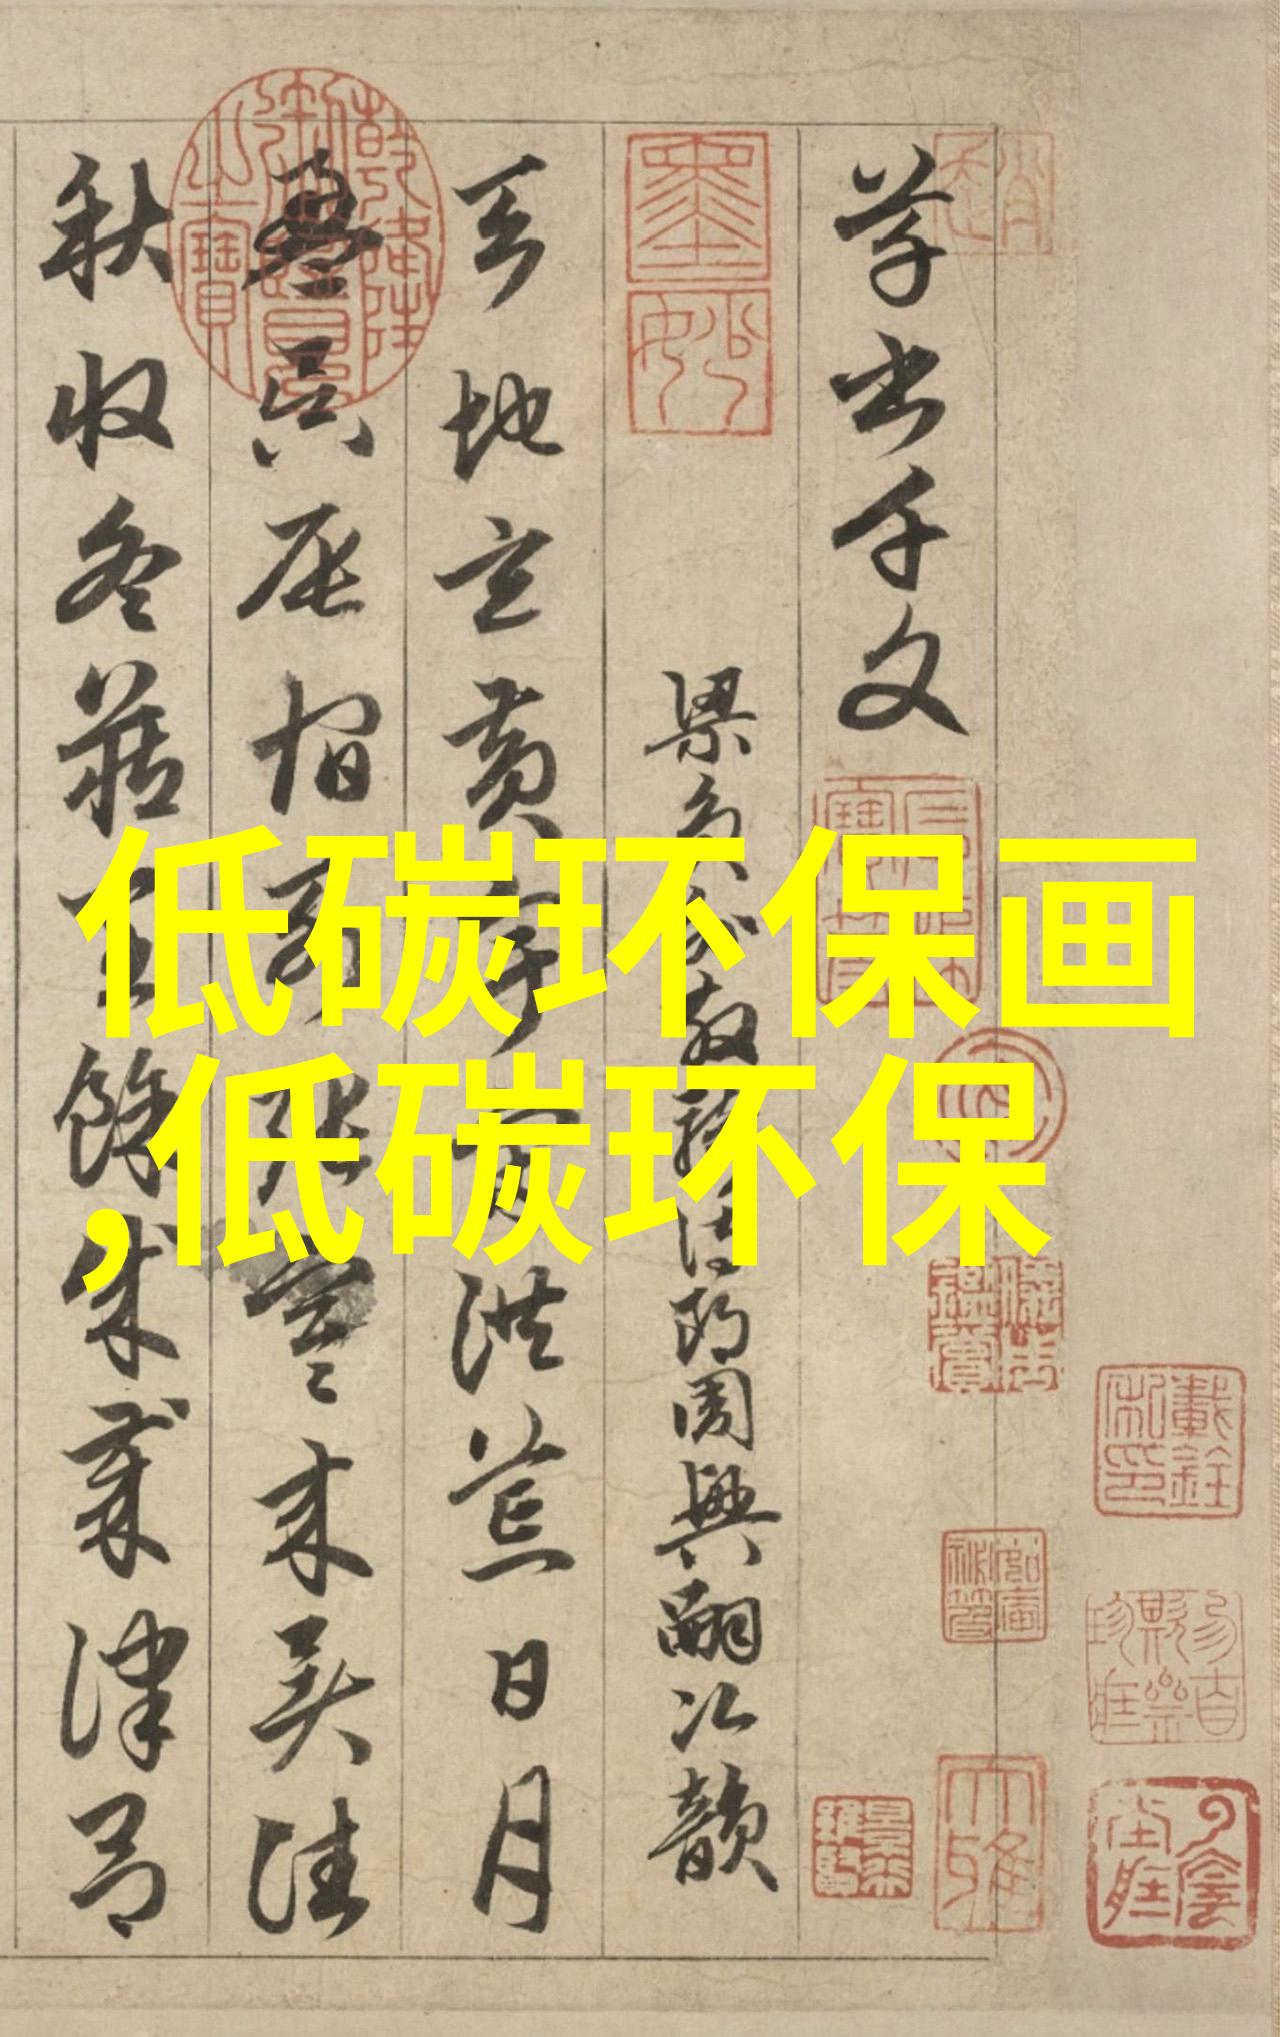 草书千文
梁员外散骑侍郎周兴嗣次韵
天地玄黄宇宙洪荒日月
盈昃辰宿列张寒来暑往
秋收冬藏闰馀成岁律吕
低碳环保画
,低碳环保
墨妙
乾隆御览之宝
大雅